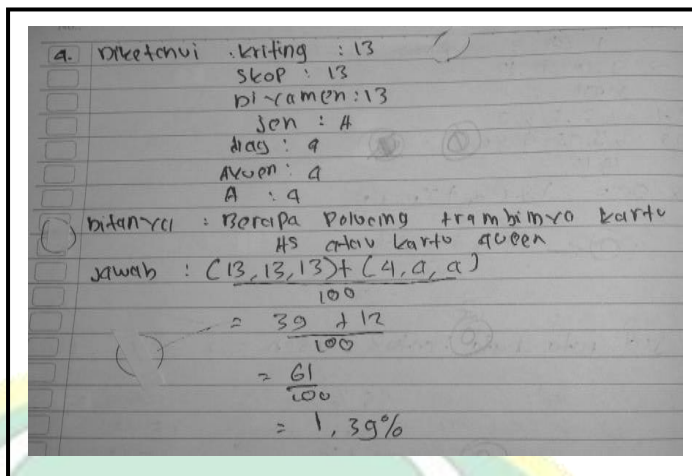 4. Diketahui : kriting : 13
skop : 13
Diyamen : 13
Jen : 4
diag : 4
Aquen : 4
A : 4
Ditanya : Berapa Poloeing trambimya kartu
AS atau kartu queen
Jawab : (13, 13, 13) + (4, 4, 4)
100
= 39 + 12
100
= 61
100
= 1,39%